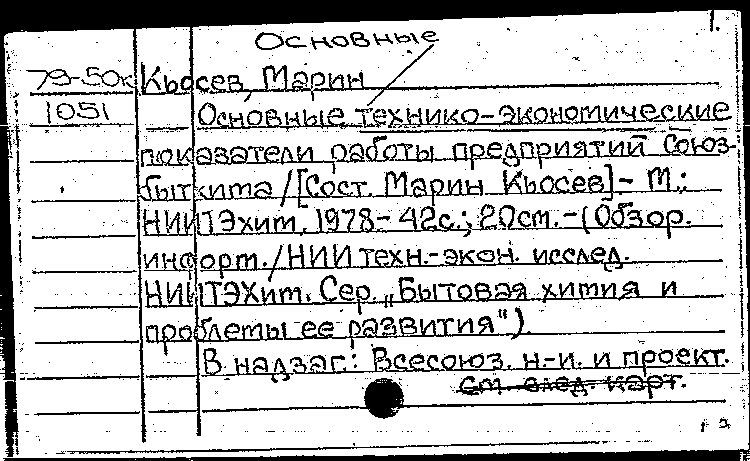 1.
Основные
79-50к Кьосев, Марин
1051 Основные технико-экономические
показатели работы предприятий Союз-
бытхима / [Сост. Марин Кьосев]- М.:
НИИТЭхим, 1978- 42с.; 20см.-(Обзор.
информ./НИИ техн.-экон. исслед.
НИИТЭХим. Сер. „Бытовая химия и
проблемы ее развития")
В надзаг: Всесоюз. н.-и. и проект.
См. след. карт.